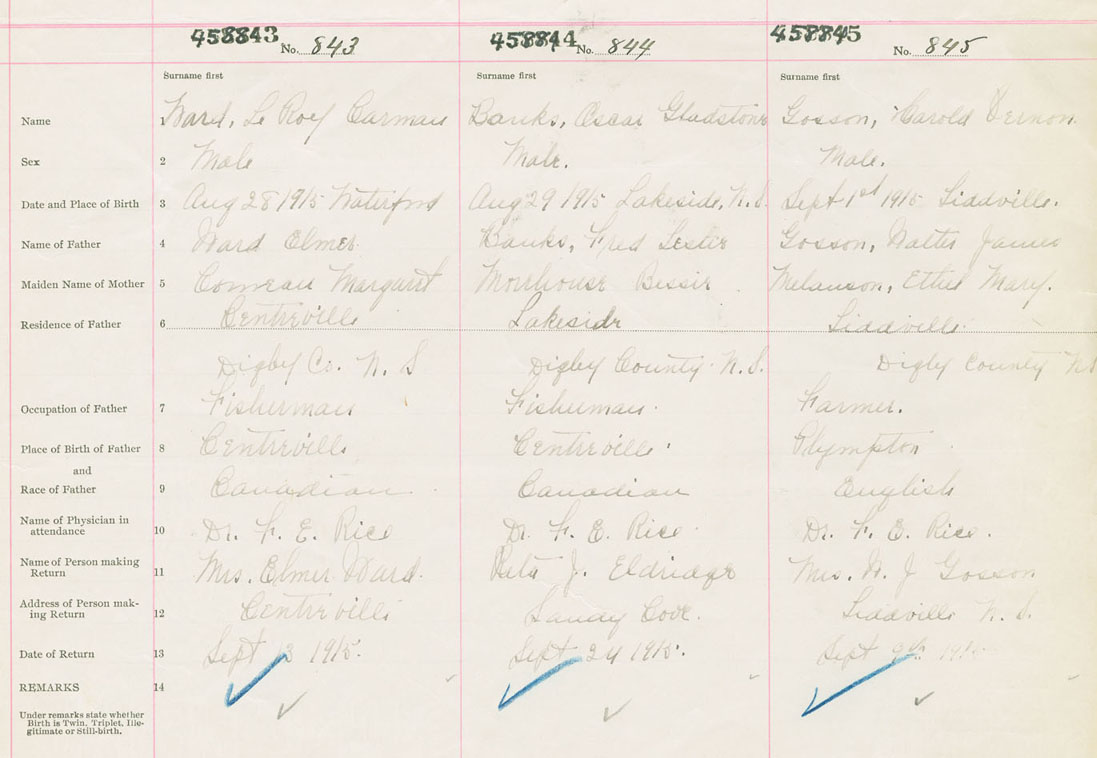 458843 No. 843 458844 No. 844 458845 No. 845
Surname first Surname first Surname first
Name 1 Ward, Le Roy Carman Banks, Oscar Gladstone Gosson, Harold Vernon
Sex 2 Male Male. Male.
Date and Place of Birth 3 Aug 28 1915 Waterford Aug 29 1915 Lakeside, N.S. Sept 1st 1915
Name of Father 4 Ward Elmer Banks, Fred Lester Gosson, James
Maiden Name of Mother 5 Comeau Margaret Morehouse Bessie Melanson, Ethel Mary.
Residence of Father 6 Centreville Lakeside
Digby Co. N. S Digby County N.S. Digby County NS
Occupation of Father 7 Fisherman Fisherman. Farmer.
Place of Birth of Father 8 Centreville Centreville Plympton
and
Race of Father 9 Canadian Canadian English
Name of Physician in
attendance 10 Dr. F. E. Rice Dr. F. E. Rice Dr. F. E. Rice.
Name of Person making
Return 11 Mrs. Elmer Ward. J. Eldridge Mrs. N. J Gosson
Address of Person mak-
ing Return 12 Centreville Sandy Cove. N. S.
Date of Return 13 Sept 13 1915. Sept 24 1915. Sept 9th 1915
REMARKS 14
Under remarks state whether
Birth is Twin. Triplet, Ille-
gitimate or Still-birth.